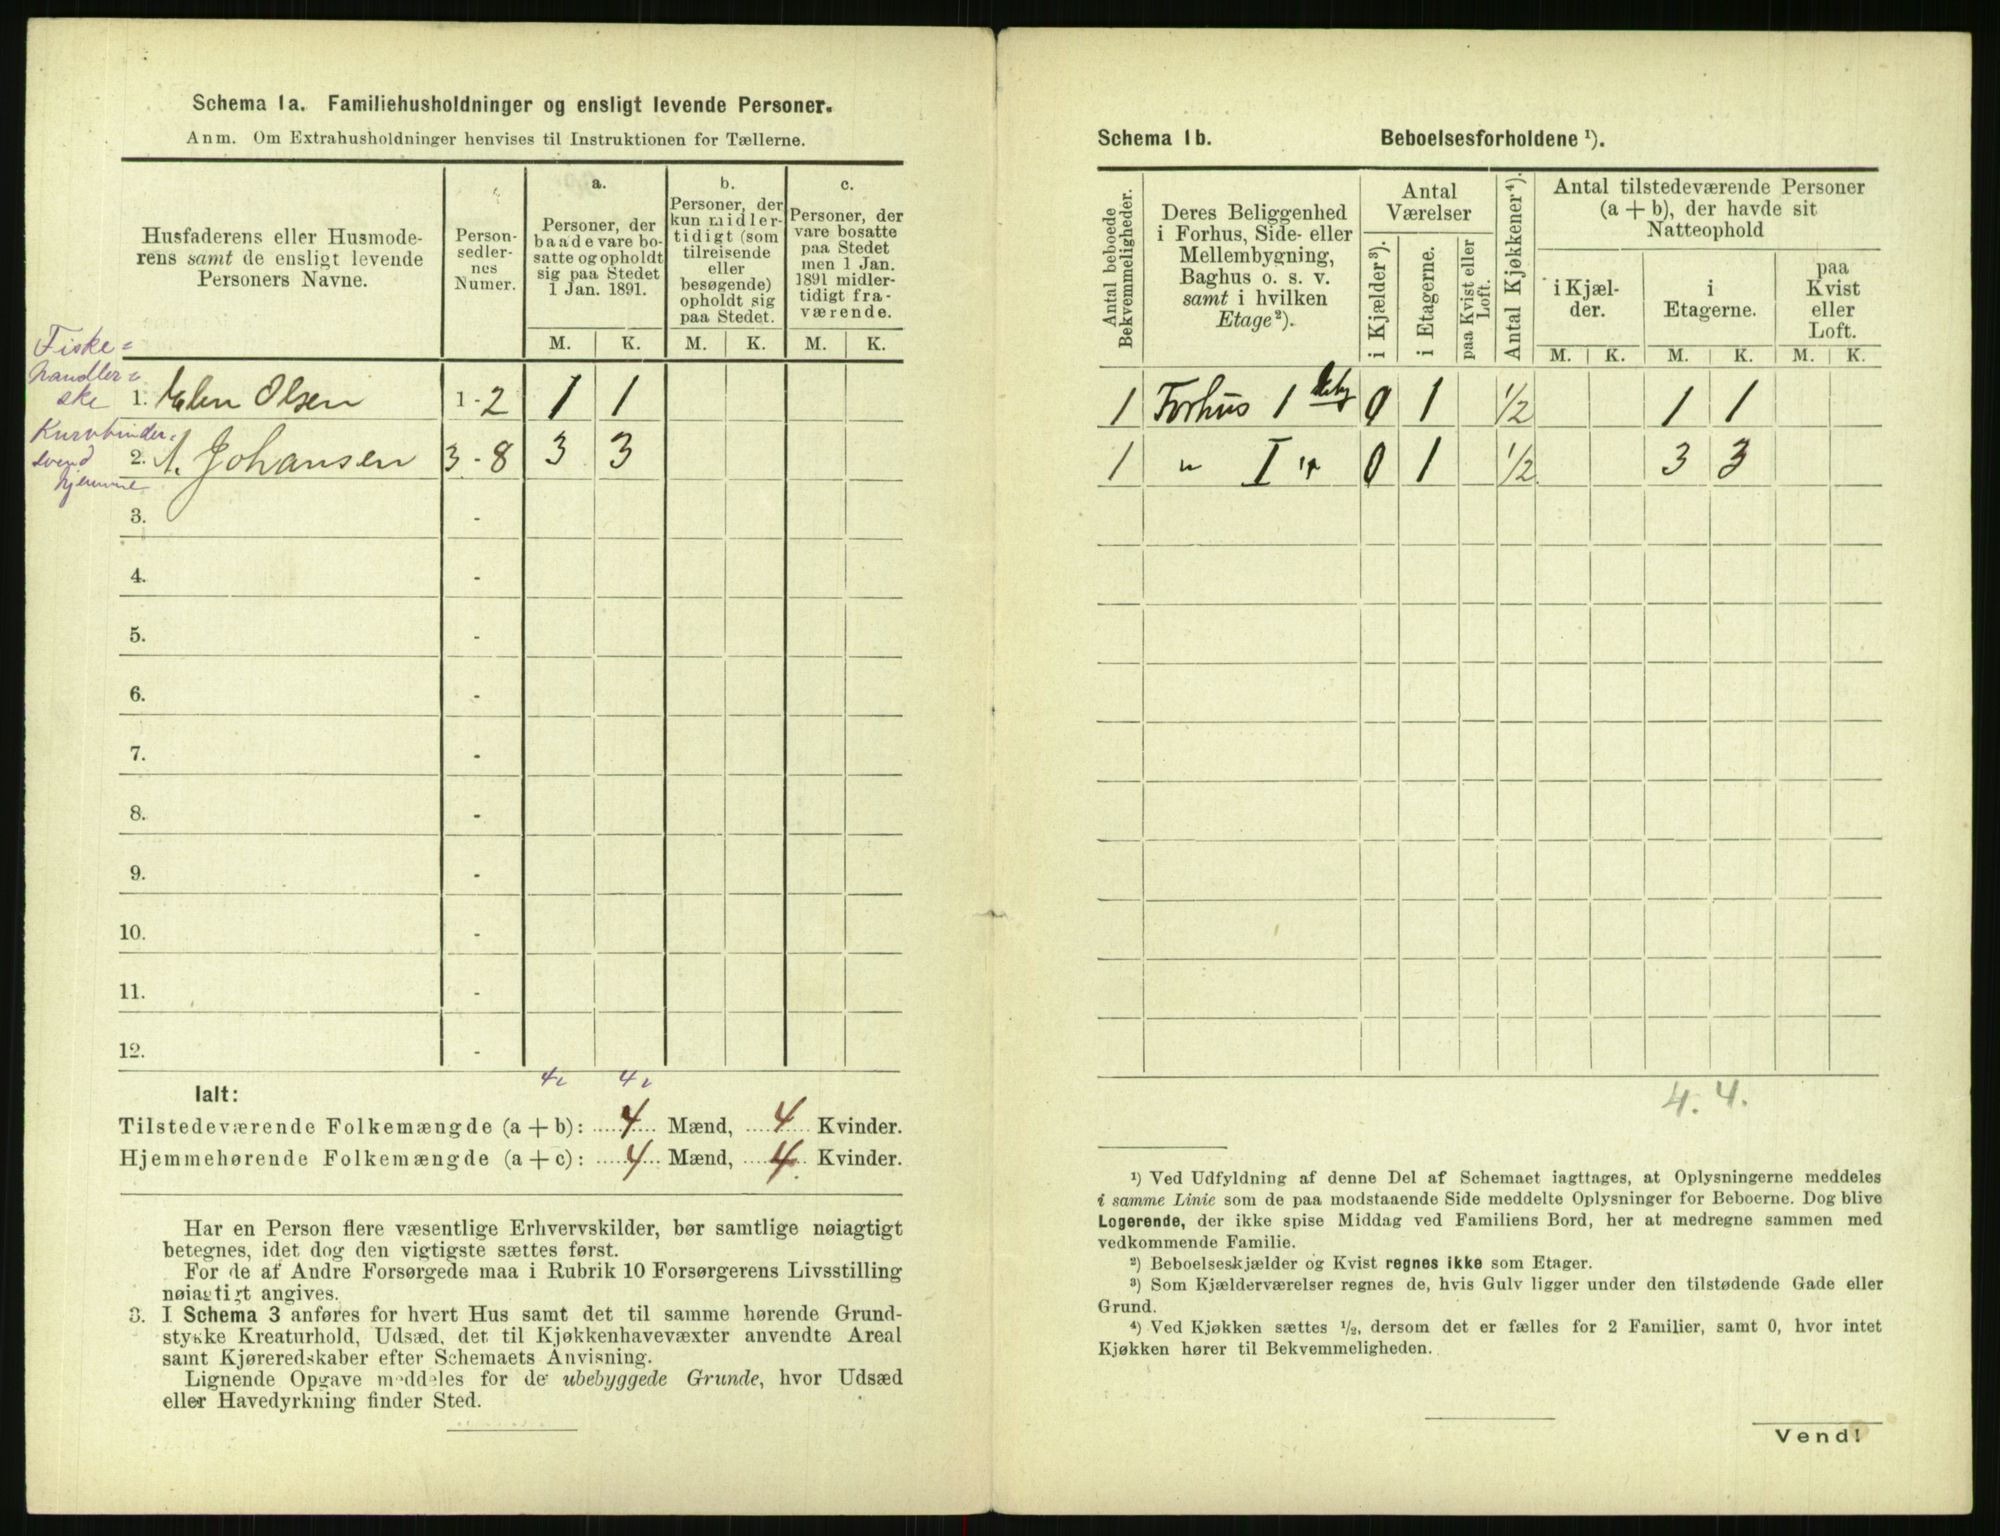 Schema 1a. Familiehusholdninger og ensligt levende Personer.
Anm. Om Extrahusholdninger henvises til Instruktionen for Tællerne.
Husfaderens eller Husmode-
rens samt de ensligt levende
Personers Navne.
Person-
sedler-
nes
Numer.
a.
Personer, der
baade vare bo-
satte og opholdt
sig paa Stedet
1 Jan. 1891.
b.
Personer, der
kun midler-
tidigt (som
tilreisende
eller
besøgende)
opholdt sig
paa Stedet.
c.
Personer, der
vare bosatte
paa Stedet
men 1 Jan.
1891 midler-
tidigt fra-
værende.
M. K. M. K. M. K.
Fiske=
handler=
ske 1. Elen Olsen 1-2 1 1
Kurvbinder=
svend 2. A. Johansen 3-8 3 3
hjemme
3. -
4. -
5. -
6. -
7. -
8. -
9. -
10. -
11. -
12. -
4 4
Ialt:
Tilstedeværende Folkemængde (a + b): 4 Mænd, 4 Kvinder.
Hjemmehørende Folkemængde (a + c): 4 Mænd, 4 Kvinder.
Har en Person flere væsentlige Erhvervskilder, bør samtlige nøiagtigt
betegnes, idet dog den vigtigste sættes først.
For de af Andre Forsørgede maa i Rubrik 10 Forsørgerens Livsstilling
nøiagtigt angives.
3. I Schema 3 anføres for hvert Hus samt det til samme hørende Grund-
stykke Kreaturhold, Udsæd, det til Kjøkkenhavevæxter anvendte Areal
samt Kjøreredskaber efter Schemaets Anvisning.
Lignende Opgave meddeles for de ubebyggede Grunde, hvor Udsæd
eller Havedyrkning finder Sted.
Schema 1b. Beboelsesforholdene ¹).
Antal beboede
Bekvemmeligheder.
Deres Beliggenhed
i Forhus, Side- eller
Mellembygning,
Baghus o. s. v.
samt i hvilken
Etage²).
Antal
Værelser
i Kjælder³).
i Etagerne.
paa Kvist eller
Loft.
Antal Kjøkkener⁴).
Antal tilstedeværende Personer
(a + b), der havde sit
Natteophold
i Kjæl-
der.
i
Etagerne.
paa
Kvist
eller
Loft.
M. K. M. K. M. K.
1 Forhus 1 0 1 1/2 1 1
1 " I " 0 1 1/2 3 3
4. 4.
¹) Ved Udfyldning af denne Del af Schemaet iagttages, at Oplysningerne meddeles
i samme Linie som de paa modstaaende Side meddelte Oplysninger for Beboerne. Dog blive
Logerende, der ikke spise Middag ved Familiens Bord, her at medregne sammen med
vedkommende Familie.
²) Beboelseskjælder og Kvist regnes ikke som Etager.
³) Som Kjælderværelser regnes de, hvis Gulv ligger under den tilstødende Gade eller
Grund.
⁴) Ved Kjøkken sættes ¹/₂, dersom det er fælles for 2 Familier, samt 0, hvor intet
Kjøkken hører til Bekvemmeligheden.
Vend!